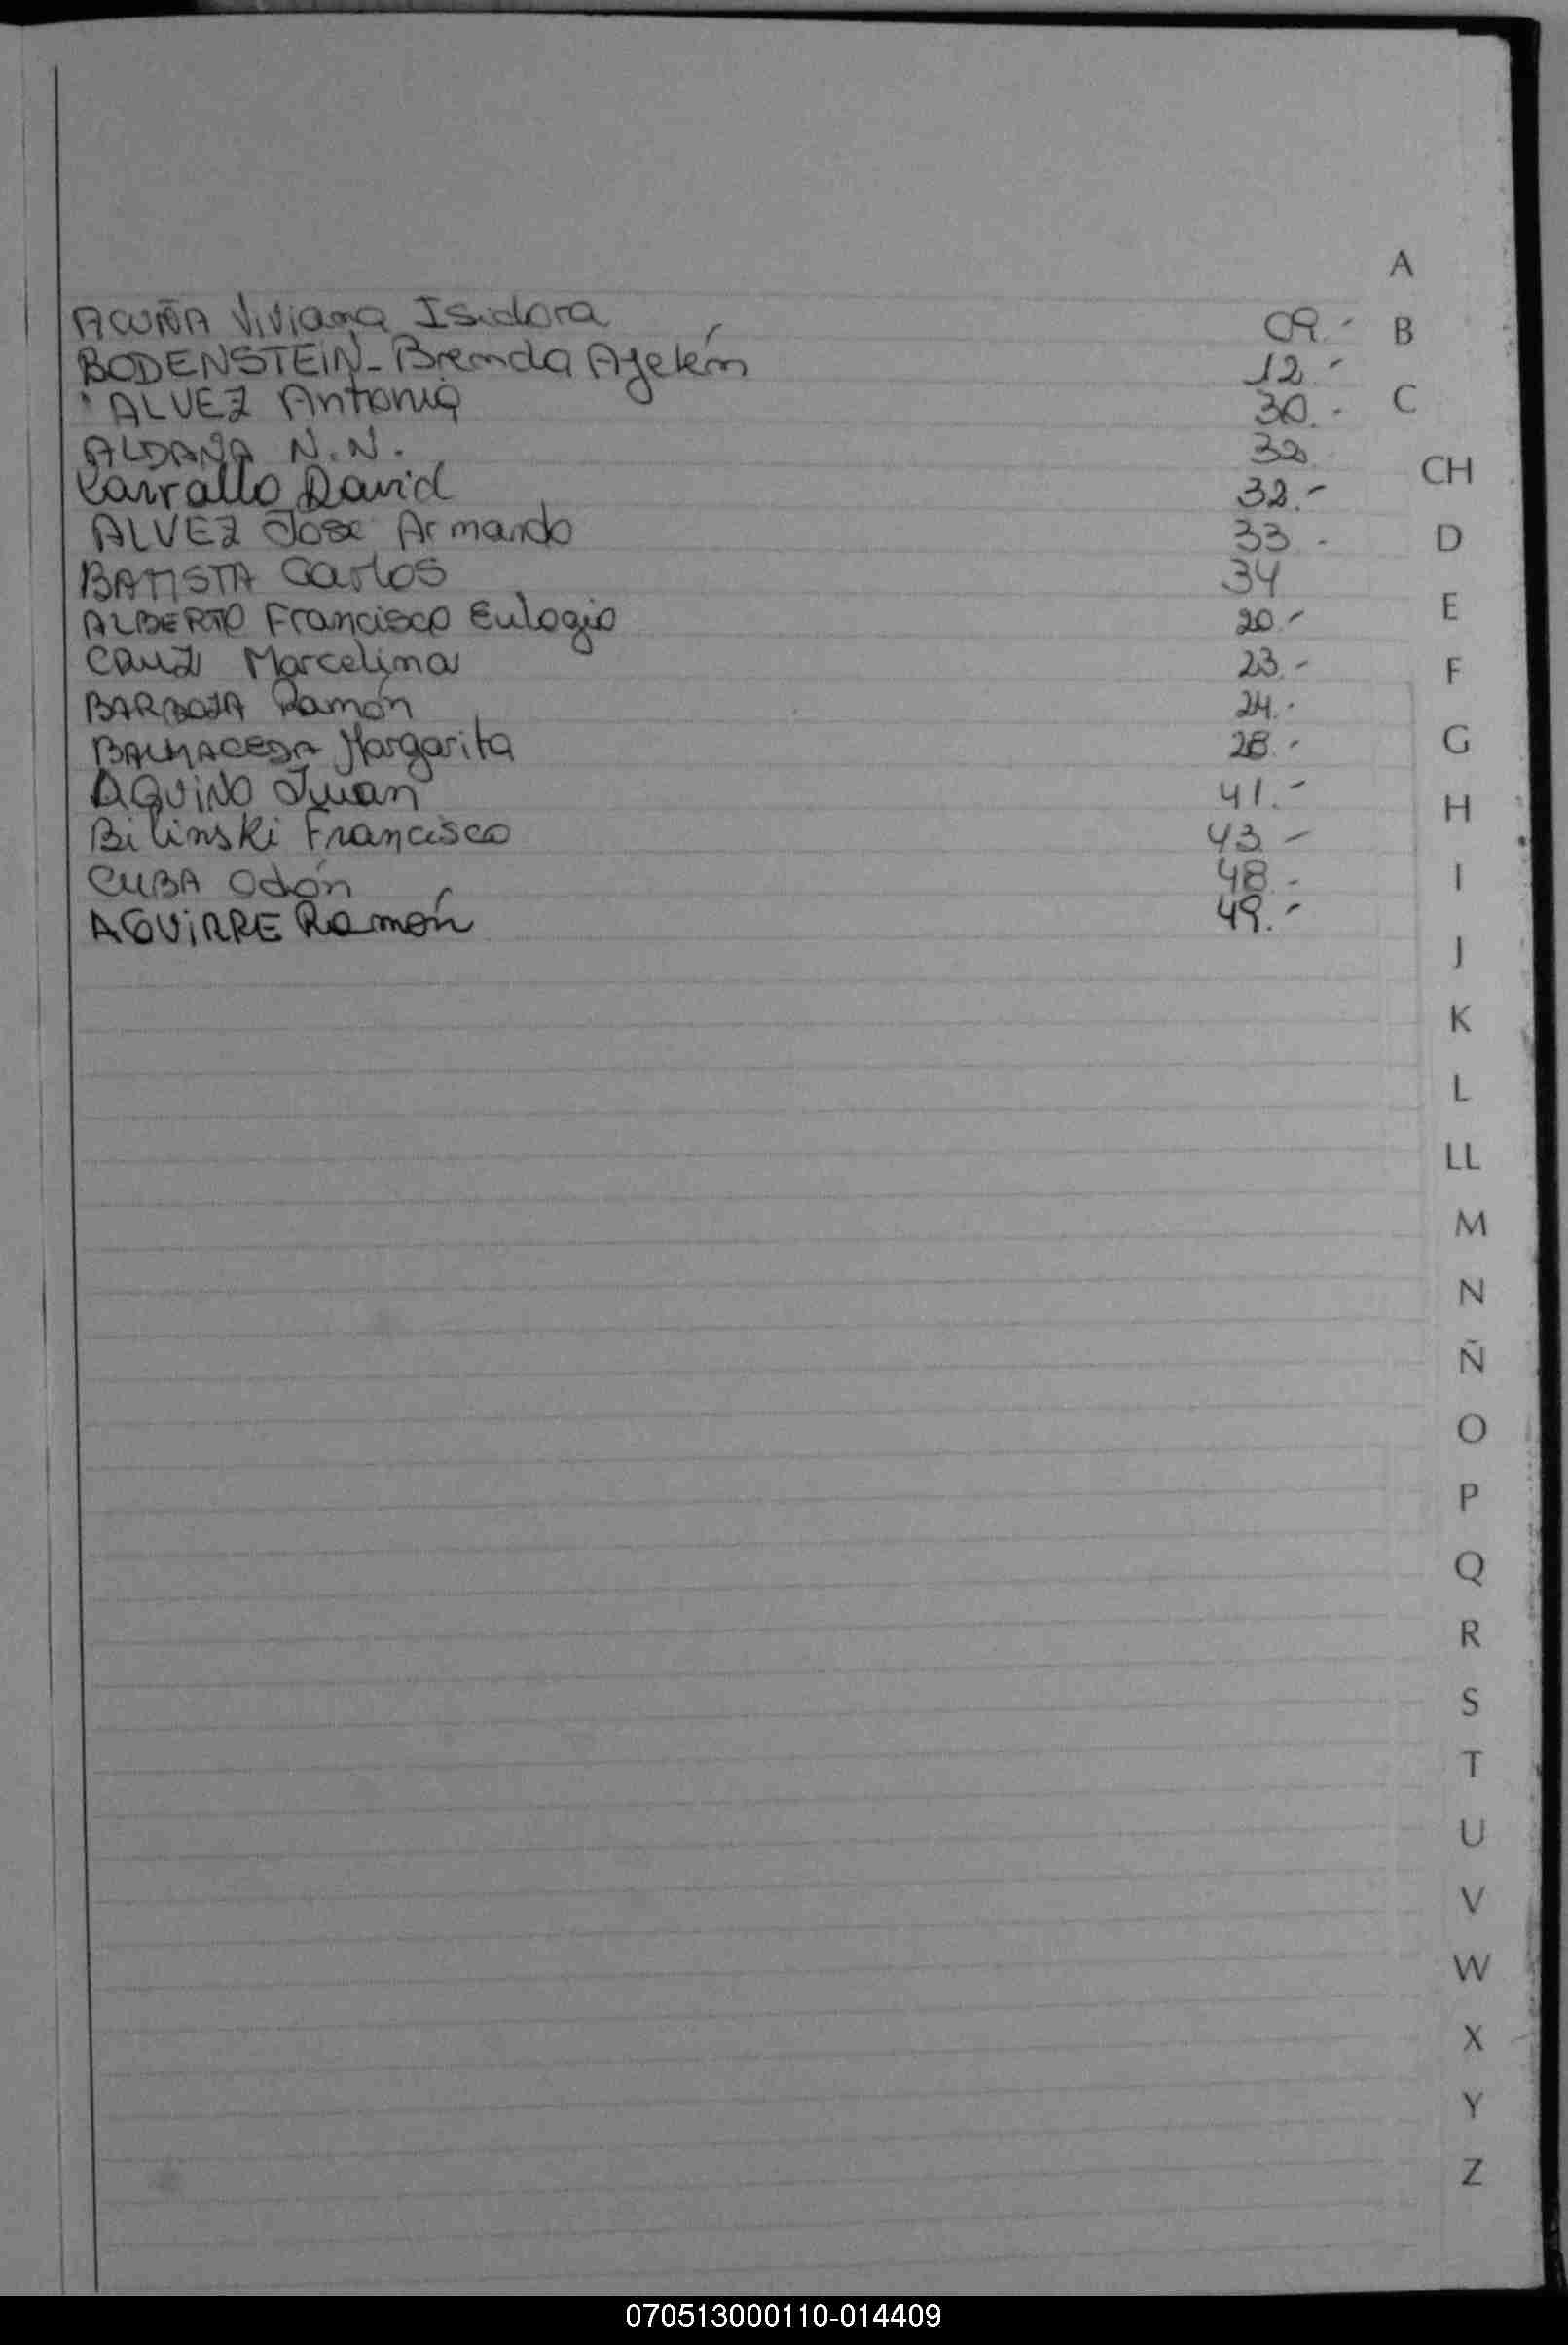 A
ACUÑA Viviana Isidora 09.-
B
BODENSTEIN - Brenda Ayelén 12.-
ALVEZ Antonia 30.-
C
ALDANA N.N. 32
CH
Carrallo David 32.-
ALVEZ Jose Armando 33.-
D
BATISTA Carlos 34
E
ALBERTO Francisco Eulogio 20.-
CRUZ Marcelina 23.-
F
BARBOZA Ramón 24.-
BALMACEDA Margarita 28.-
G
AQUINO Juan 41.-
H
Bilinski Francisco 43.-
CUBA Odón 48.-
I
AGUIRRE Ramón 49.-
J
K
L
LL
M
N
Ñ
O
P
Q
R
S
T
U
V
W
X
Y
Z
070513000110-014409